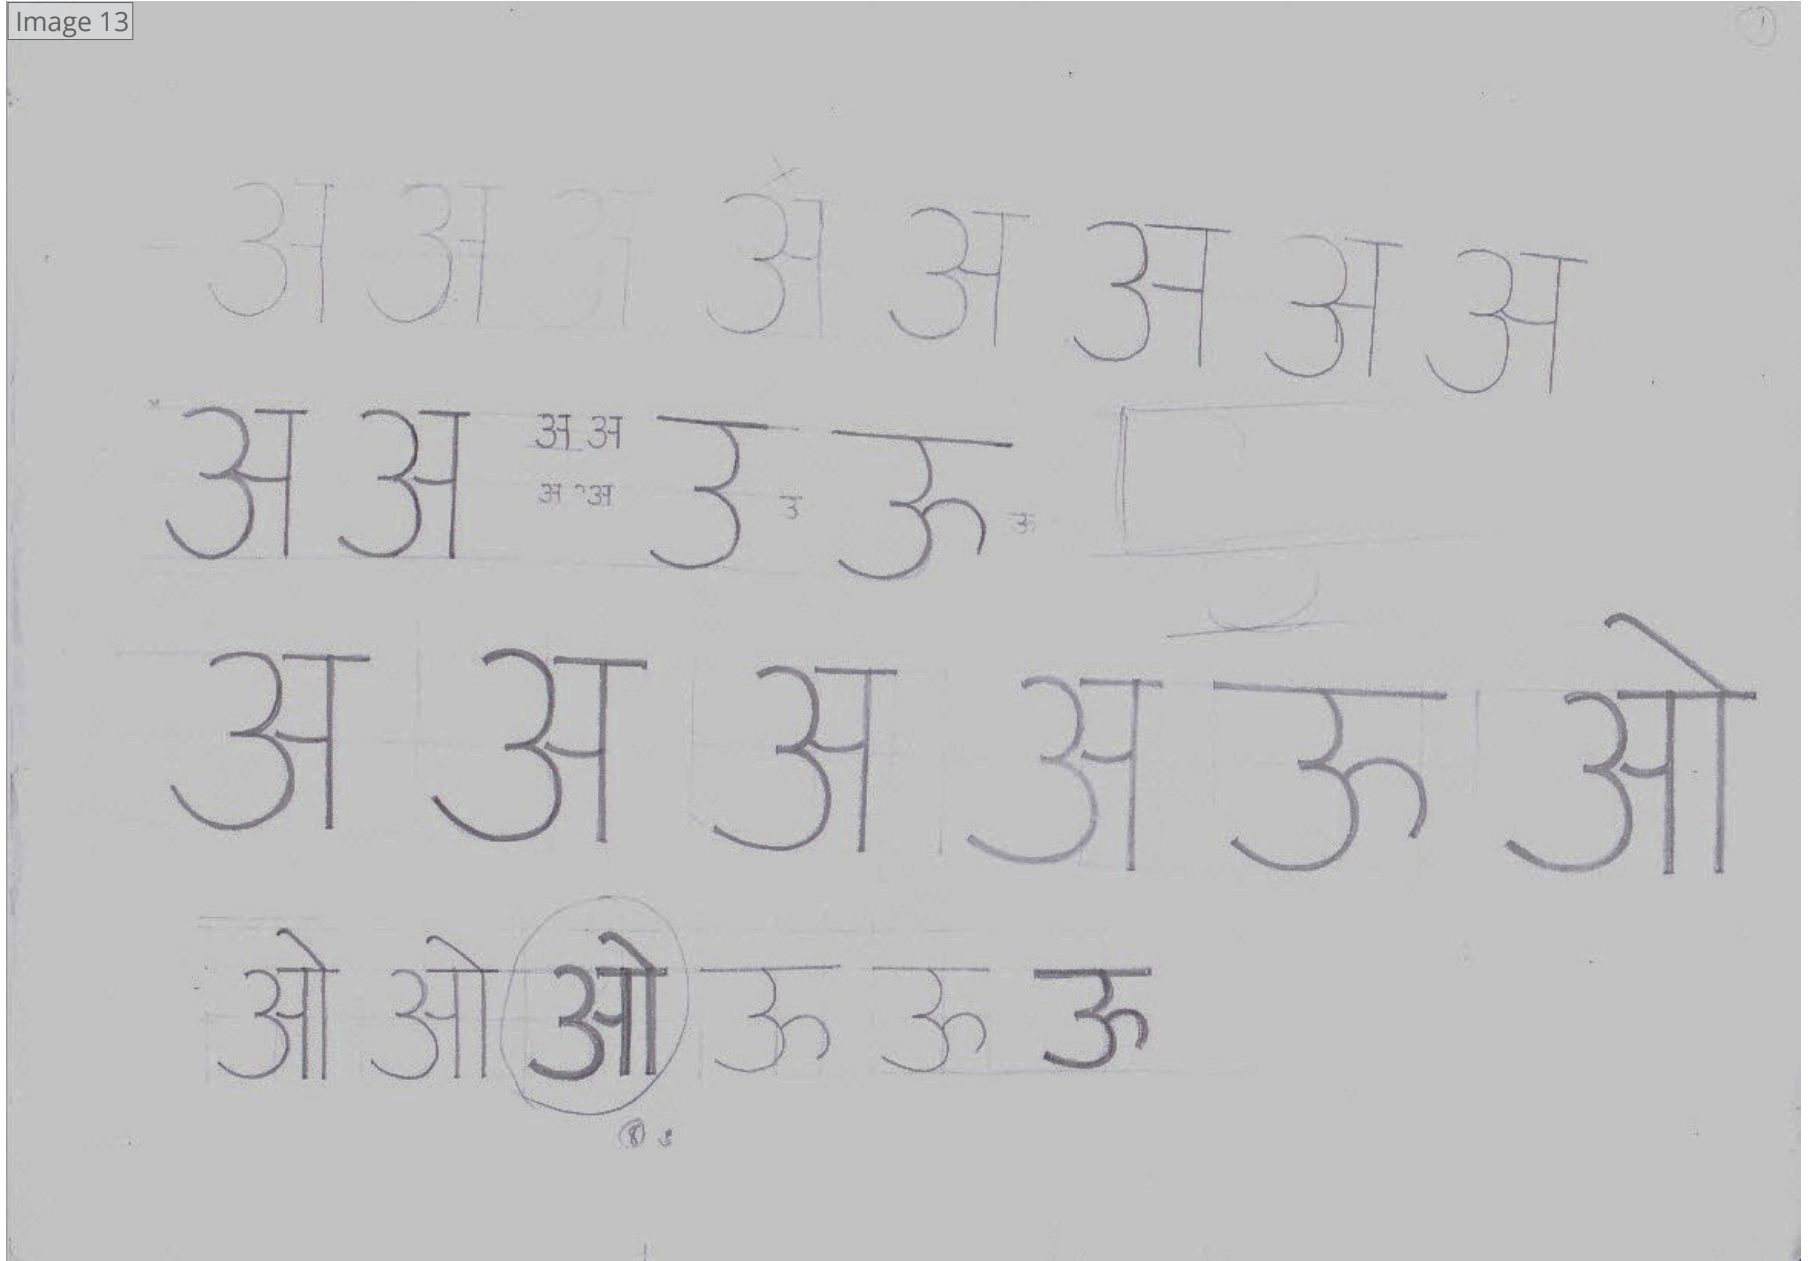 Image 13
अ अ अ अ अ अ अ अ
अ अ अ अ उ ऊ
अ अ उ ऊ
अ अ अ अ ऊ ओ
ओ ओ ओ ऊ ऊ ऊ